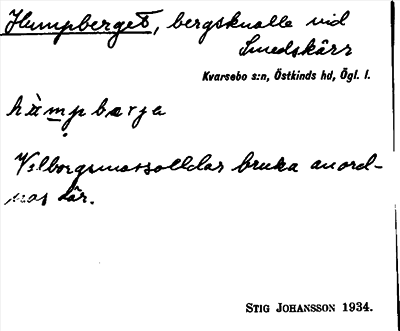 Humpberget, bergsknalle vid
Smedskärr
Kvarsebo s:n, Östkinds hd, Ögl. l.
hùmpbærja
Valborgsmässoeldar bruka anord-
nas där.
STIG JOHANSSON 1934.